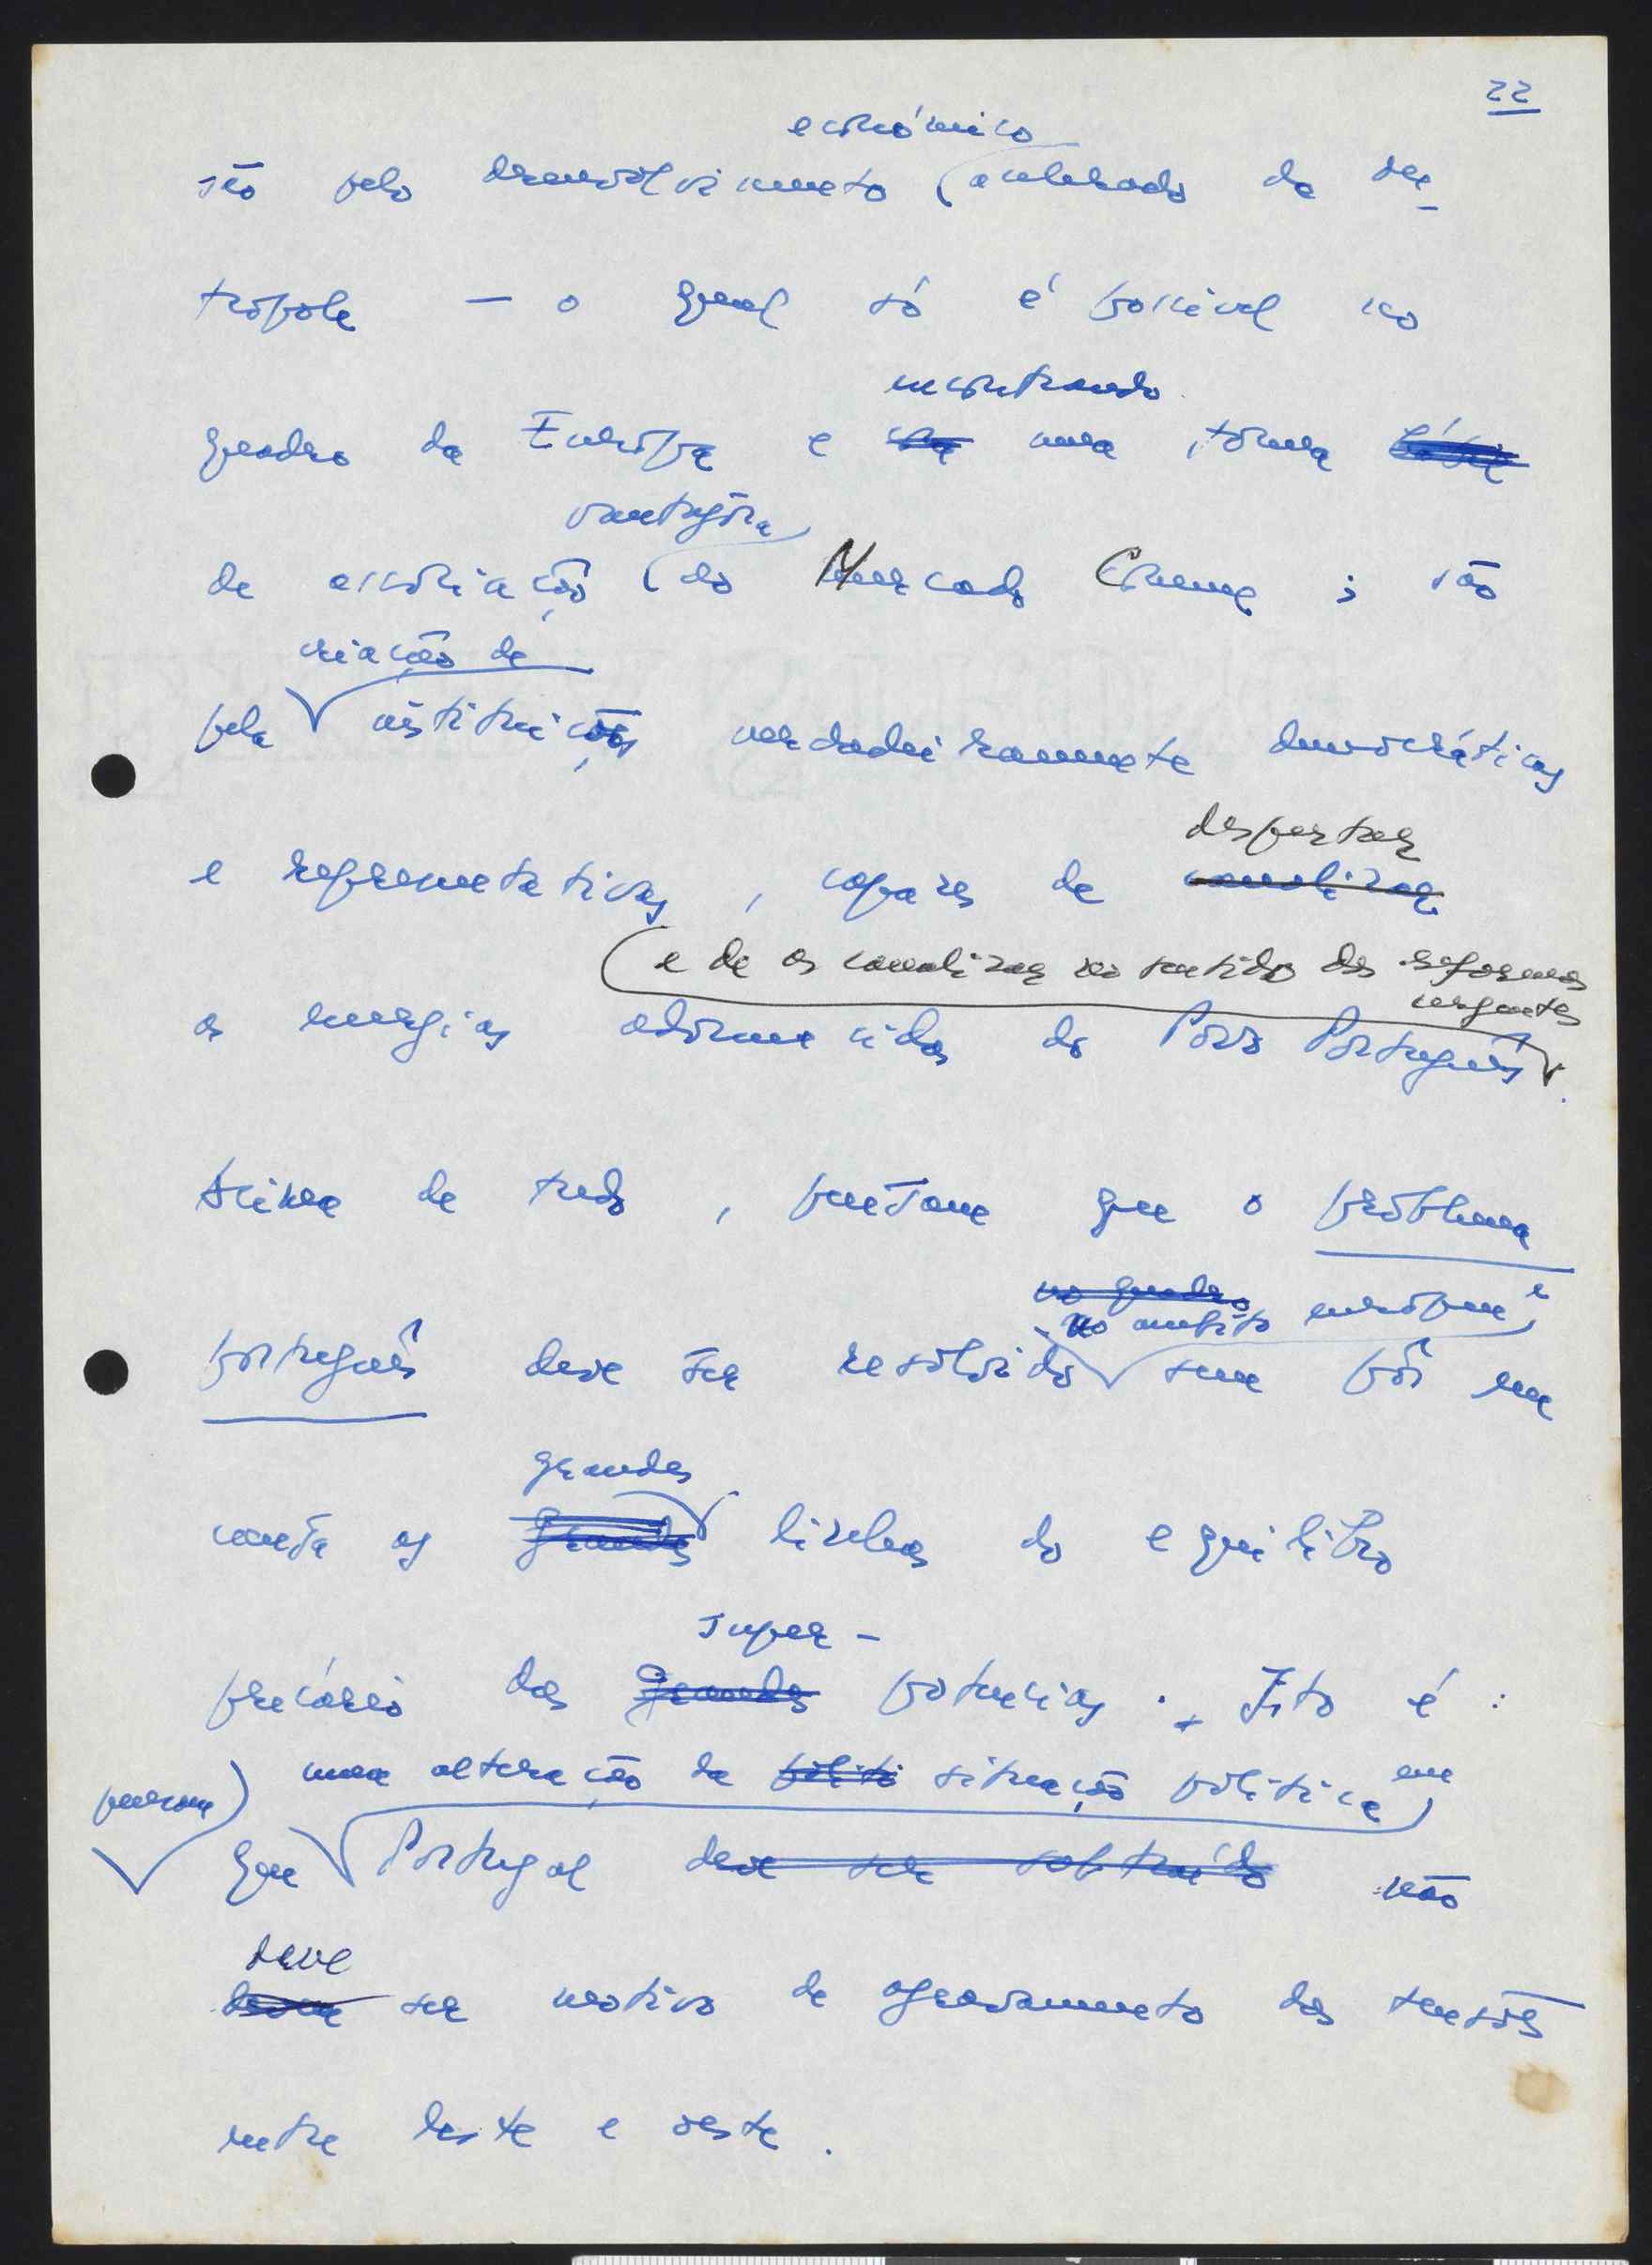 22
económico
são pelo desenvolvimento acelerado da me-
trópole — o qual só é possível no
encontrando
quadro da Europa e na uma forma
vantajosa
de associação do Mercado Comum ; são
criação de
pela instituições verdadeiramente democráticas
despertar
e representativas , capazes de canalizar
e de as canalizar no sentido das reformas
urgentes
as energias adormecidas do Povo Português .
Acima de tudo , pensam que o problema
no quadro
no ambito europeu e
português deve ser resolvido sem pôr em
grandes
causa as grandes linhas do equilibro
super -
precário das grandes potencias . Isto é :
pensam uma alteração da politi situação politica em
que Portugal deve ser subtraído não
deve
ser motivo de agravamento das tensões
entre leste e oeste .